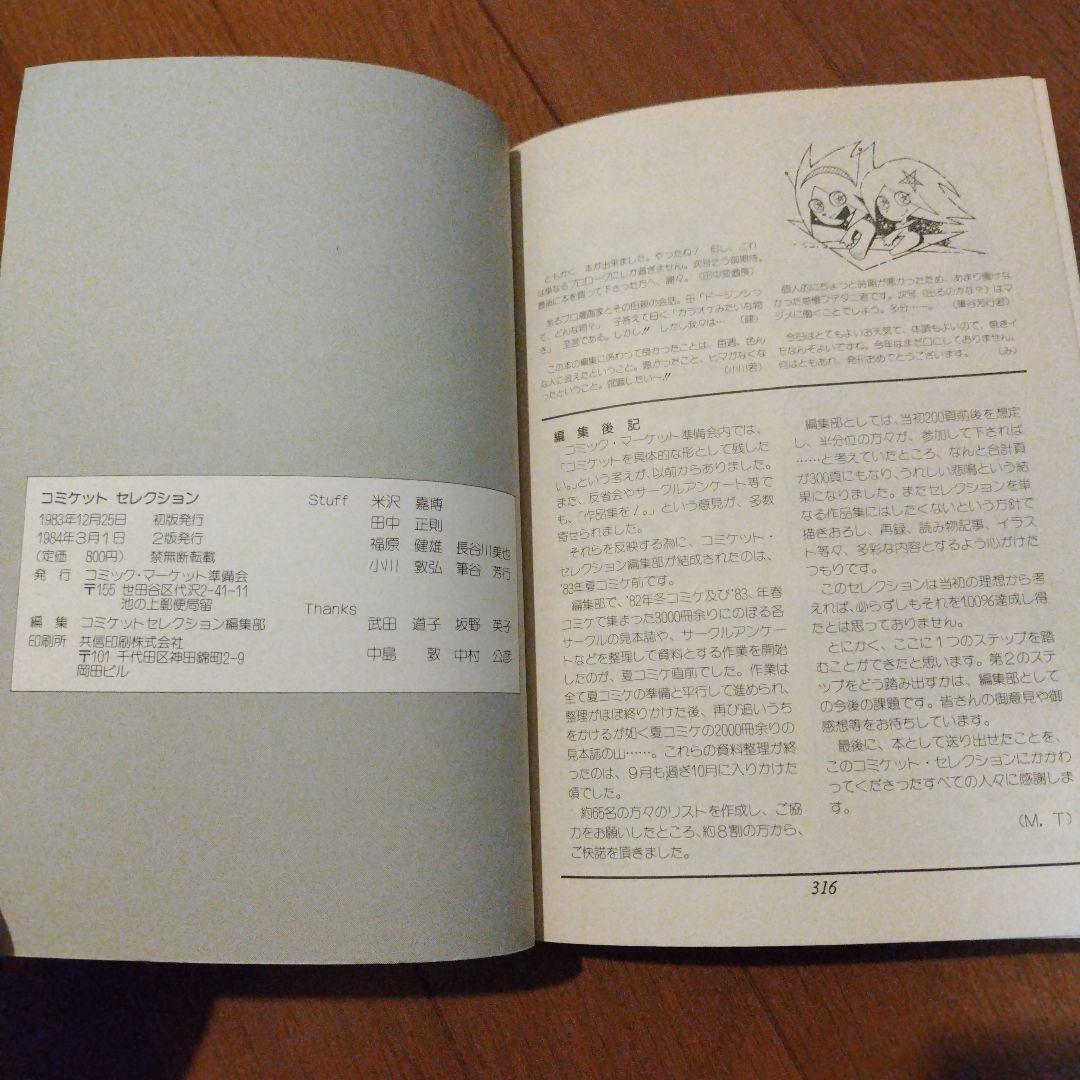 コミケット セレクション
1983年12月25日 初版発行
1984年3月1日 2版発行
(定価 800円) 禁無断転載
発 行 コミック・マーケット準備会
〒155 世田谷区代沢2-41-11
池の上郵便局留
編 集 コミケットセレクション編集部
印刷所 共信印刷株式会社
〒101 千代田区神田錦町2-9
岡田ビル
Stuff 米沢 嘉博
田中 正則
福原 健雄 長谷川美也
小川 敦弘 筆谷 芳行
Thanks
武田 道子 坂野 英子
中島 敦 中村 公彦
ともかく、本が出来ました。やったね! 但し、これ
は単なるプロローグにしか過ぎません。次号そう御期待。
最後に本を買って下さった方へ、謝々。(田中
あるプロ漫画家とその母親の会話。母「ドージンシっ
て、どんな物?」 子答えて曰く「カラオケみたいな物
さ」 至言である。しかし!! しかし我々は… (健)
この本の編集に係わって良かったことは、毎週、色ん
な人に会えたということ。悪かったこと、ヒマがなくな
ったということ。就職したい〜!! (小川君)
個人的にちょっと時期が悪かったため、あまり働けな
かった怠慢フデタニ君です。次号(出るのかな?)はマ
ジメに働くことでしょう。多分……。 (筆谷芳行君)
今日はとてもよいお天気で、体調もよいので、焼きイ
モなんぞよいですね。今年はまだ口にしておりません。
何はともあれ、発刊おめでとうございます。 (み)
編集後記
コミック・マーケット準備会内では、
「コミケットを具体的な形として残した
い。」という考えが、以前からありました。
また、反省会やサークルアンケート等で
も、「作品集を!。」という意見が、多数
寄せられました。
それらを反映する為に、コミケット・
セレクション編集部が結成されたのは、
'83年夏コミケ前です。
編集部で、'82年冬コミケ及び'83、年春
コミケで集まった3000冊余りにのぼる各
サークルの見本誌や、サークルアンケー
トなどを整理して資料とする作業を開始
したのが、夏コミケ直前でした。作業は
全て夏コミケの準備と平行して進められ、
整理がほぼ終りかけた後、再び追いうち
をかけるが如く夏コミケの2000冊余りの
見本誌の山……。これらの資料整理が終
ったのは、9月も過ぎ10月に入りかけた
頃でした。
約65名の方々のリストを作成し、ご協
力をお願いしたところ、約8割の方から、
ご快諾を頂きました。
編集部としては、当初200頁前後を想定
し、半分位の方々が、参加して下されば
……と考えていたところ、なんと合計頁
が300頁にもなり、うれしい悲鳴という結
果になりました。またセレクションを単
なる作品集にはしたくないという方針で
描きおろし、再録、読み物記事、イラス
ト等々、多彩な内容とするよう心がけた
つもりです。
このセレクションは当初の理想から考
えれば、必らずしもそれを100%達成し得
たとは思っておりません。
とにかく、ここに1つのステップを踏
むことができたと思います。第2のステ
ップをどう踏み出すかは、編集部として
の今後の課題です。皆さんの御意見や御
感想等をお待ちしています。
最後に、本として送り出せたことを、
このコミケット・セレクションにかかわ
ってくださったすべての人々に感謝しま
す。
(M. T)
316